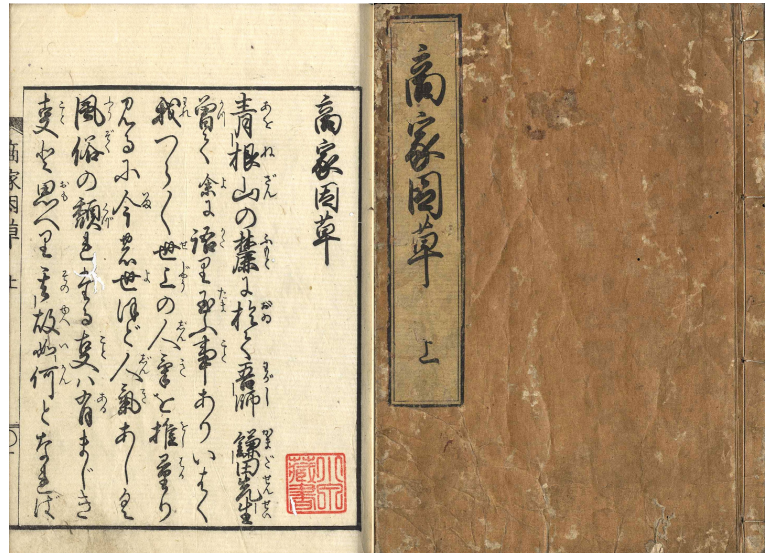 商家因草 上
商家因草
青根山の麓に於て吾師鎌田先生
曽て余に語り玉ふ事ありいはく
我つら〱世上の人気を推量り
見るに今の世ほど人氣あしく
風俗の頽れたる事ハ有まじき
事と思へり其故如何となれば
商家因草 上
藏書